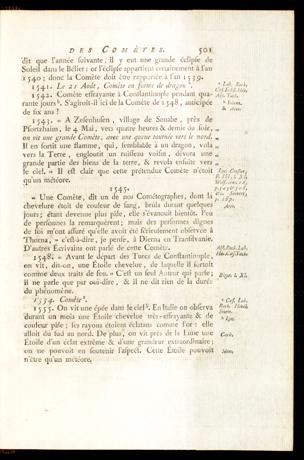 DES COMÈTES. 501
dit que l'année suivante, il y eut une grande éclipse de
Soleil dans le Bélier: or l'éclipse appartient certainement à l'an
1540; donc la Comète doit être rapportée à l'an 1539.
1541. Le 21 Août, Comète en forme de dragon.
1542. Comète effrayante à Constantinople pendant qua-
rante jours. S'agiroit-il ici de la Comète de 1548, anticipée
de six ans!
1543. « A Zesenhusen, village de Souabe, près de
Pfortzhaim, le 4 Mai, vers quatre heures & demie du soir,
on vit une grande Comète, avec une queue tournée vers le nord.
Il en sortit une flamme, qui, semblable à un dragon, vola
vers la Terre, engloutit un ruisseau voisin, dévora une
grande partie des biens de la terre, & revola ensuite vers
le ciel. » Il est clair que cette prétendue Comète n'étoit
qu'un météore.
1545.
« Une Comète, dit un de nos Cométographes, dont la
chevelure étoit de couleur de sang, brûla durant quelques
jours; étant devenue plus pâle, elle s'évanouit bientôt. Peu
de personnes la remarquèrent; mais des personnes dignes
de foi m'ont assuré qu'elle avoit été sérieusement observée à
Thorna, » c'est-à-dire, je pense, à Dierna en Transilvanie.
D'autres Écrivains ont parlé de cette Comète.
1548. « Avant le départ des Turcs de Constantinople,
on vit, dit-on, une Étoile chevelue, de laquelle il sortoit
comme deux traits de feu. » C'est un seul Auteur qui parle;
il ne parle que par oui-dire, & il ne dit rien de la durée
du phénomène.
1554. Comète.
1555. On vit une épée dans le ciel. En Italie on observa
durant un mois une Étoile chevelue très-effrayante & de
couleur pâle; ses rayons étoient éclatans comme l'or: elle
alloit du sud au nord. De plus, on vit près de la Lune une
Étoile d'un éclat extrême & d'une grandeur extraordinaire;
on ne pouvoit en soutenir l'aspect. Cette Étoile pouvoit
n'être qu'un météore.